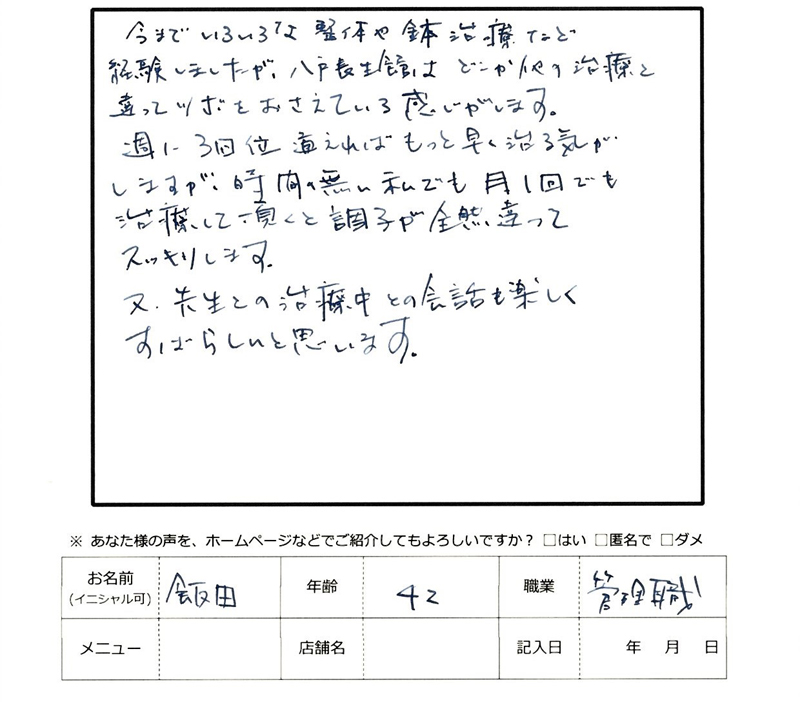 今までいろいろな整体や鍼治療など
経験しましたが、八戸長生館はどこか他の治療と
違ってツボをおさえている感じがします。
週に3回位通えればもっと早く治る気が
しますが、時間の無い私でも月1回でも
治療して頂くと調子が全然違って
スッキリします。
又、先生との治療中との会話も楽しく
すばらしいと思います。
※ あなた様の声を、ホームページなどでご紹介してもよろしいですか？ □はい □匿名で □ダメ
お名前 飯田 年齢 42 職業 管理職
（イニシャル可）
メニュー 店舗名 記入日 年 月 日